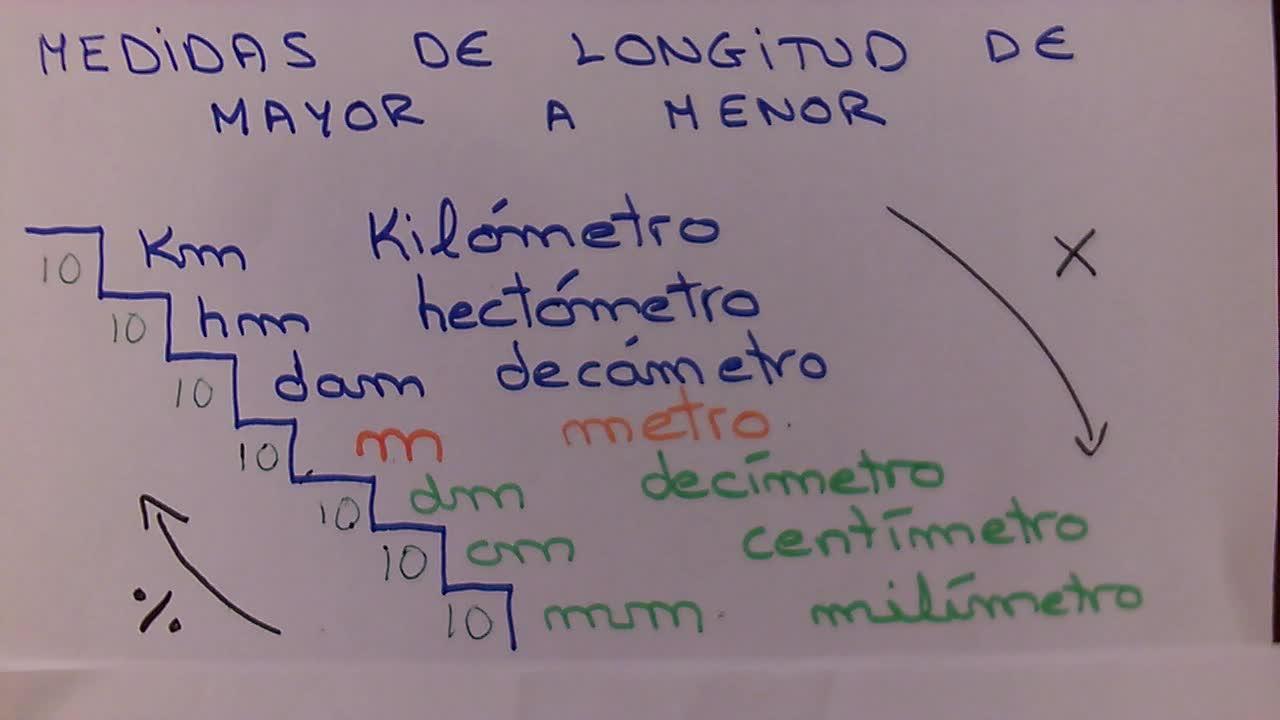 MEDiDAS DE LONGiTUD DE
MAYOR A MENOR
Km Kilómetro X
10
hm hectómetro
10
dam decámetro
10
m metro
10
dm decímetro
10
cm centímetro
10
mm milímetro
10
%